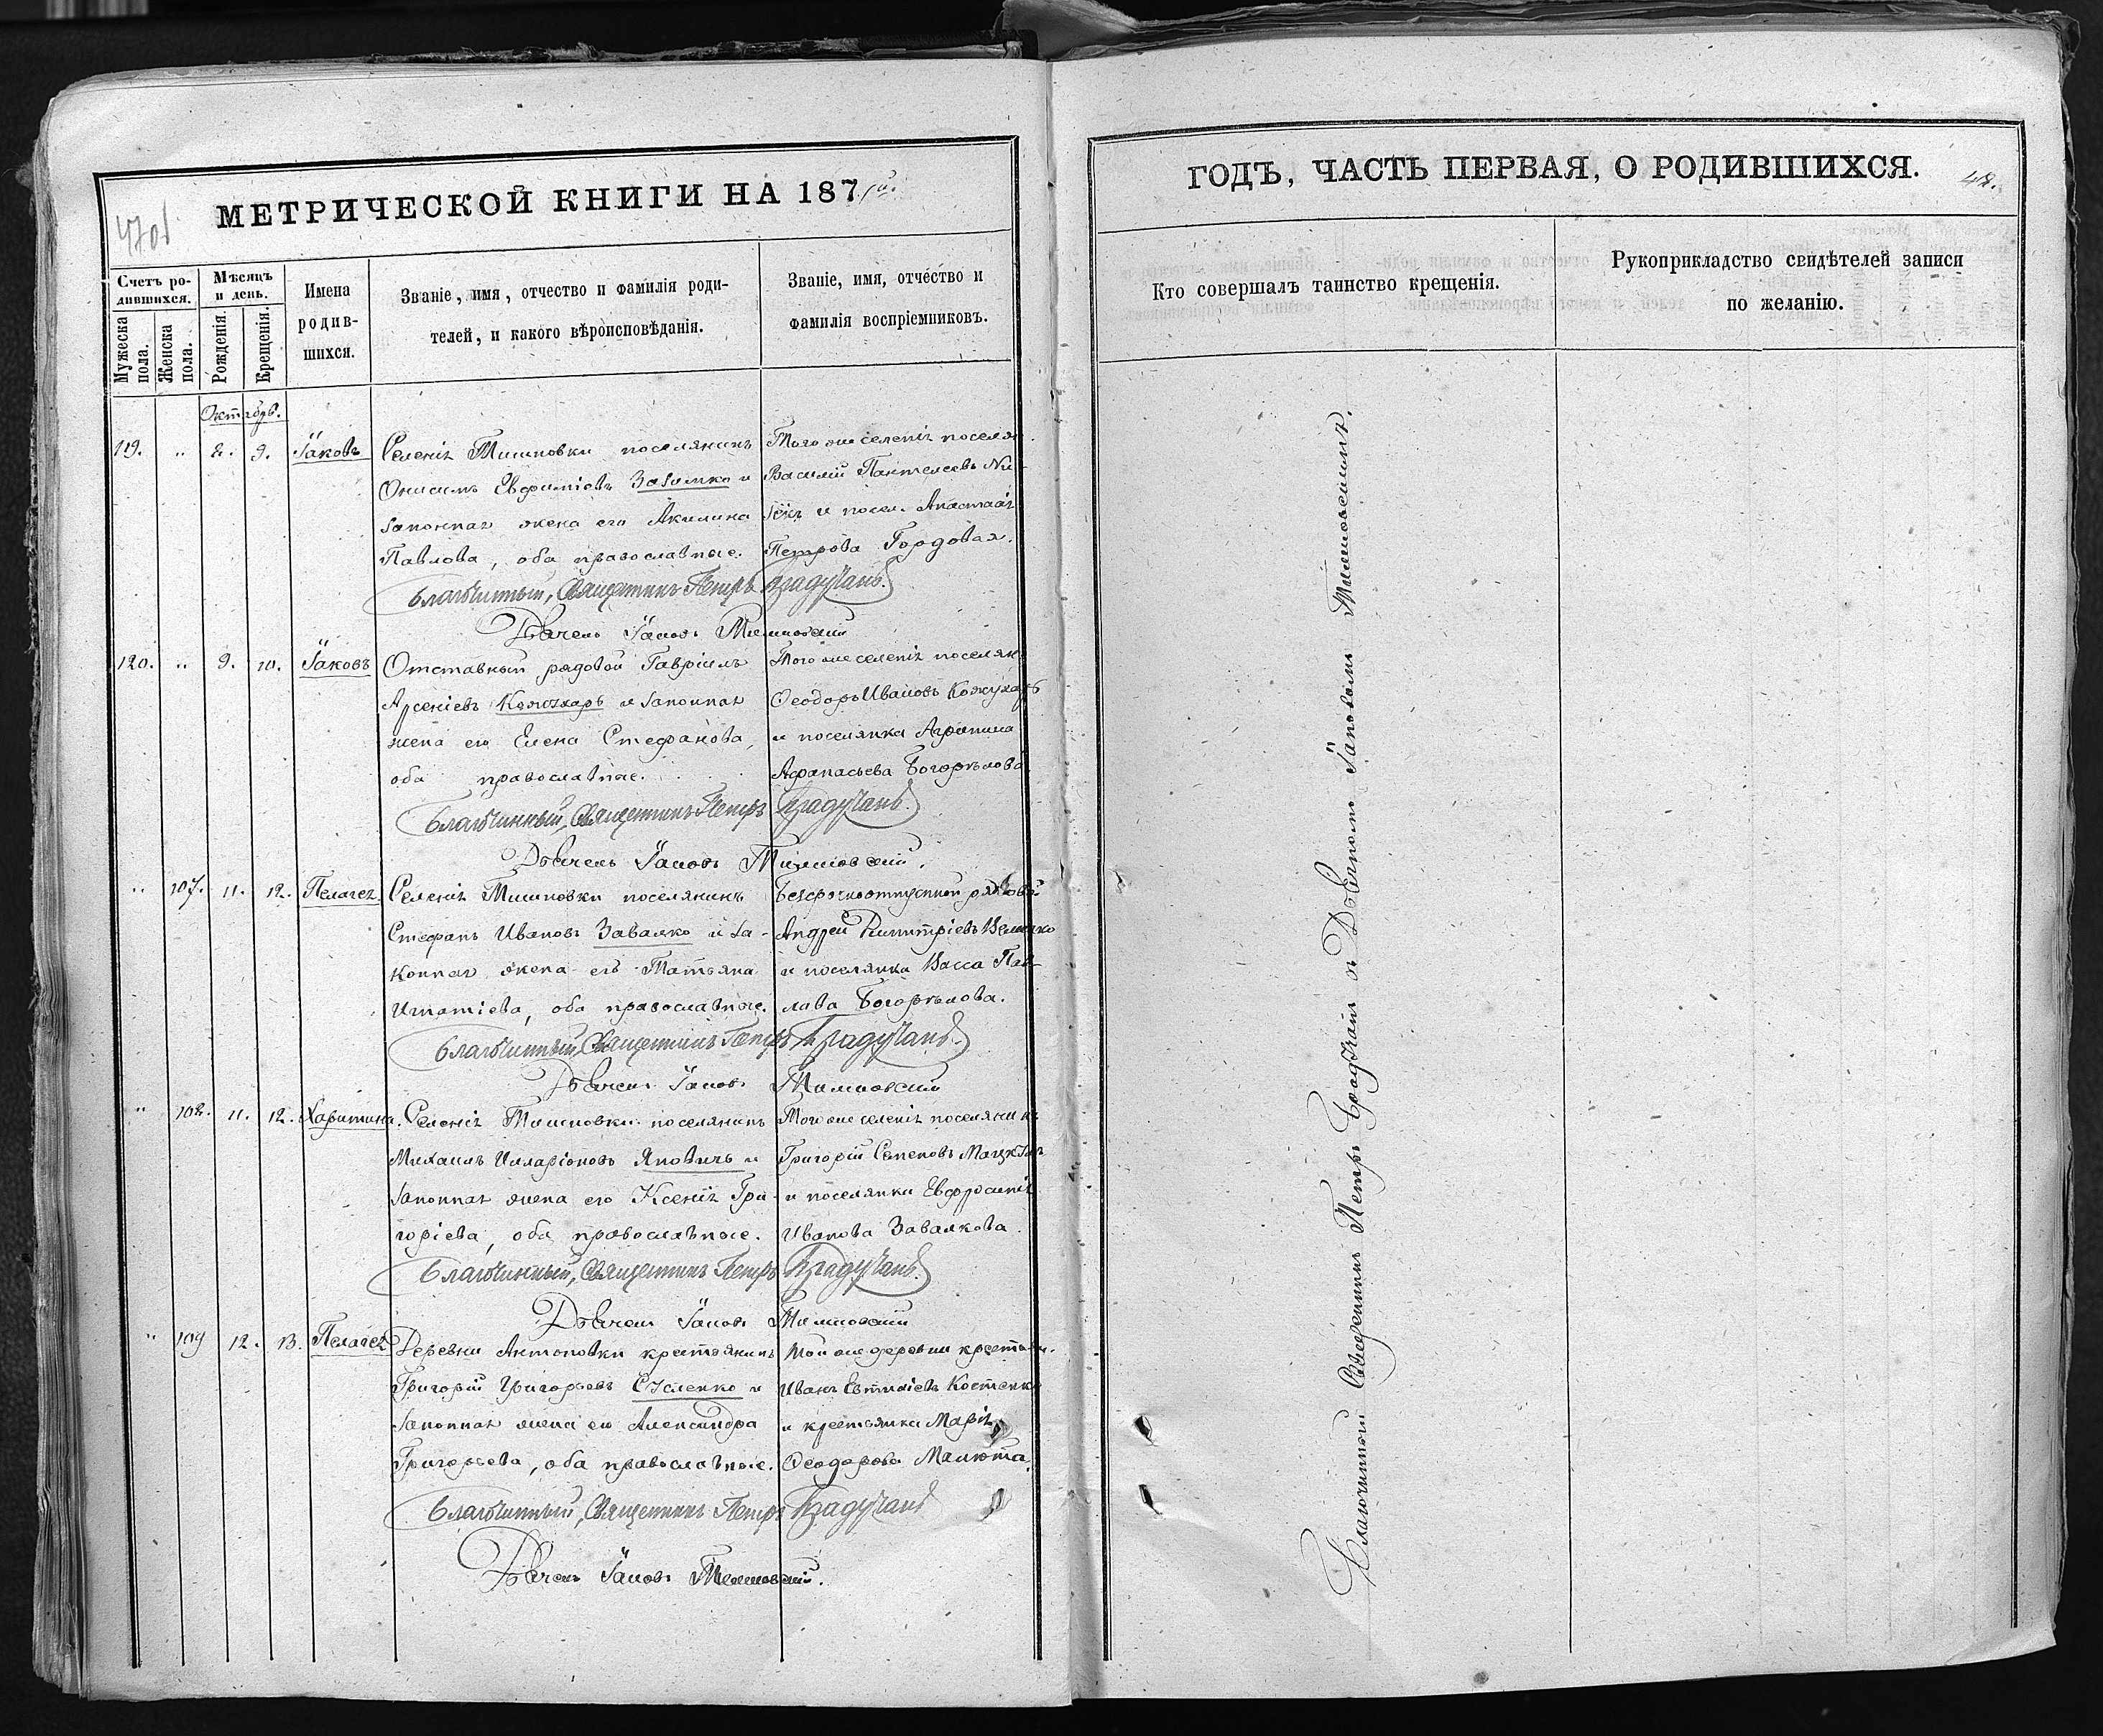 МЕТРИЧЕСКОЙ КНИГИ НА 1871й.
Счетъ ро-
дившихся.
Мужеска
пола.
Женска
пола.
Мѣсяцъ
и день.
Рожденія.
Крещенія.
Имена
родив-
шихся.
Званіе, имя, отчество и фамилія роди-
телей, и какого вѣроисповѣданія.
Званіе, имя, отчество и
фамилія воспріемниковъ.
Октябрь.
119. " 8. 9. Іаковъ
Селенія Тишковки поселянинъ
Онисимъ Евфиміевъ и
законная жена его Акилина
Павлова, оба православные.
Того же селенія поселян.
Василій Пантелеевъ
и посел. Анастасія
Петрова Гордовая.
Благочинный, Священникъ Петръ Брадучанъ.
Дьячекъ Іаковъ
120. " 9. 10. Іаковъ
Отставный рядовой Гавріилъ
Арсеніевъ и законная
жена его Елена Стефанова,
оба православные.
Того же селенія поселян.
Ѳеодоръ Ивановъ Кожухарь
и поселянка Агрипина
Афанасьева Богорѣлова
Благочинный, Священникъ Петръ Брадучанъ.
Дьячекъ Іаковъ
" 107. 11. 12. Пелагея
Селенія Тишковки поселянинъ
Стефанъ Ивановъ Завалко и за-
конная жена его Татьяна
Игнатіева, оба православные.
Безсрочноотпускной рядовой
Андрей Димитріевъ Величко
и поселянка Васса Пав-
лова Богорѣлова.
Благочинный, Священникъ Петръ Брадучанъ.
Дьячекъ Іаковъ
" 108. 11. 12. Харитина.
Селенія Тишковки поселянинъ
Михаилъ Илларіоновъ Яновичъ и
законная жена его Ксенія Гри-
горіева, оба православные.
Того же селенія поселянинъ
Григорій Семеновъ
и поселянка Евфросинія
Иванова Завалкова.
Благочинный, Священникъ Петръ Брадучанъ.
Дьячекъ Іаковъ
" 109 12. 13. Пелагея
Деревни Антоновки крестьянинъ
Григорій Григорьевъ и
законная жена его Александра
Григорьева, оба православные.
Той же деревни крестьян.
Иванъ Евтихіевъ Костенко
и крестьянка Марія
Ѳеодорова Малюта.
Благочинный, Священникъ Петръ Брадучанъ
Дьячекъ Іаковъ
ГОДЪ, ЧАСТЬ ПЕРВАЯ, О РОДИВШИХСЯ.
48.
Кто совершалъ таинство крещенія.
Рукоприкладство свидѣтелей записи
по желанію.
Благочинный Священникъ Петръ Брадучанъ съ Дьячкомъ Іаковомъ